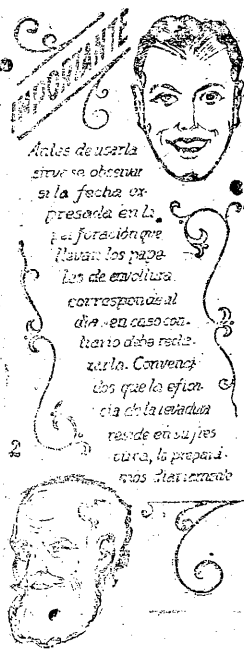 IMPORTANTE
Antes de usarla
sirvase observar
si la fecha ex-
presada en la
perforación que
llevan los pape-
les de envoltura
corresponde al
día, en caso con-
trario debe recha-
zarla. Convenci-
dos que la eficen-
cia de la levadura
reside en su fres-
cura, la prepara-
mos diariamente